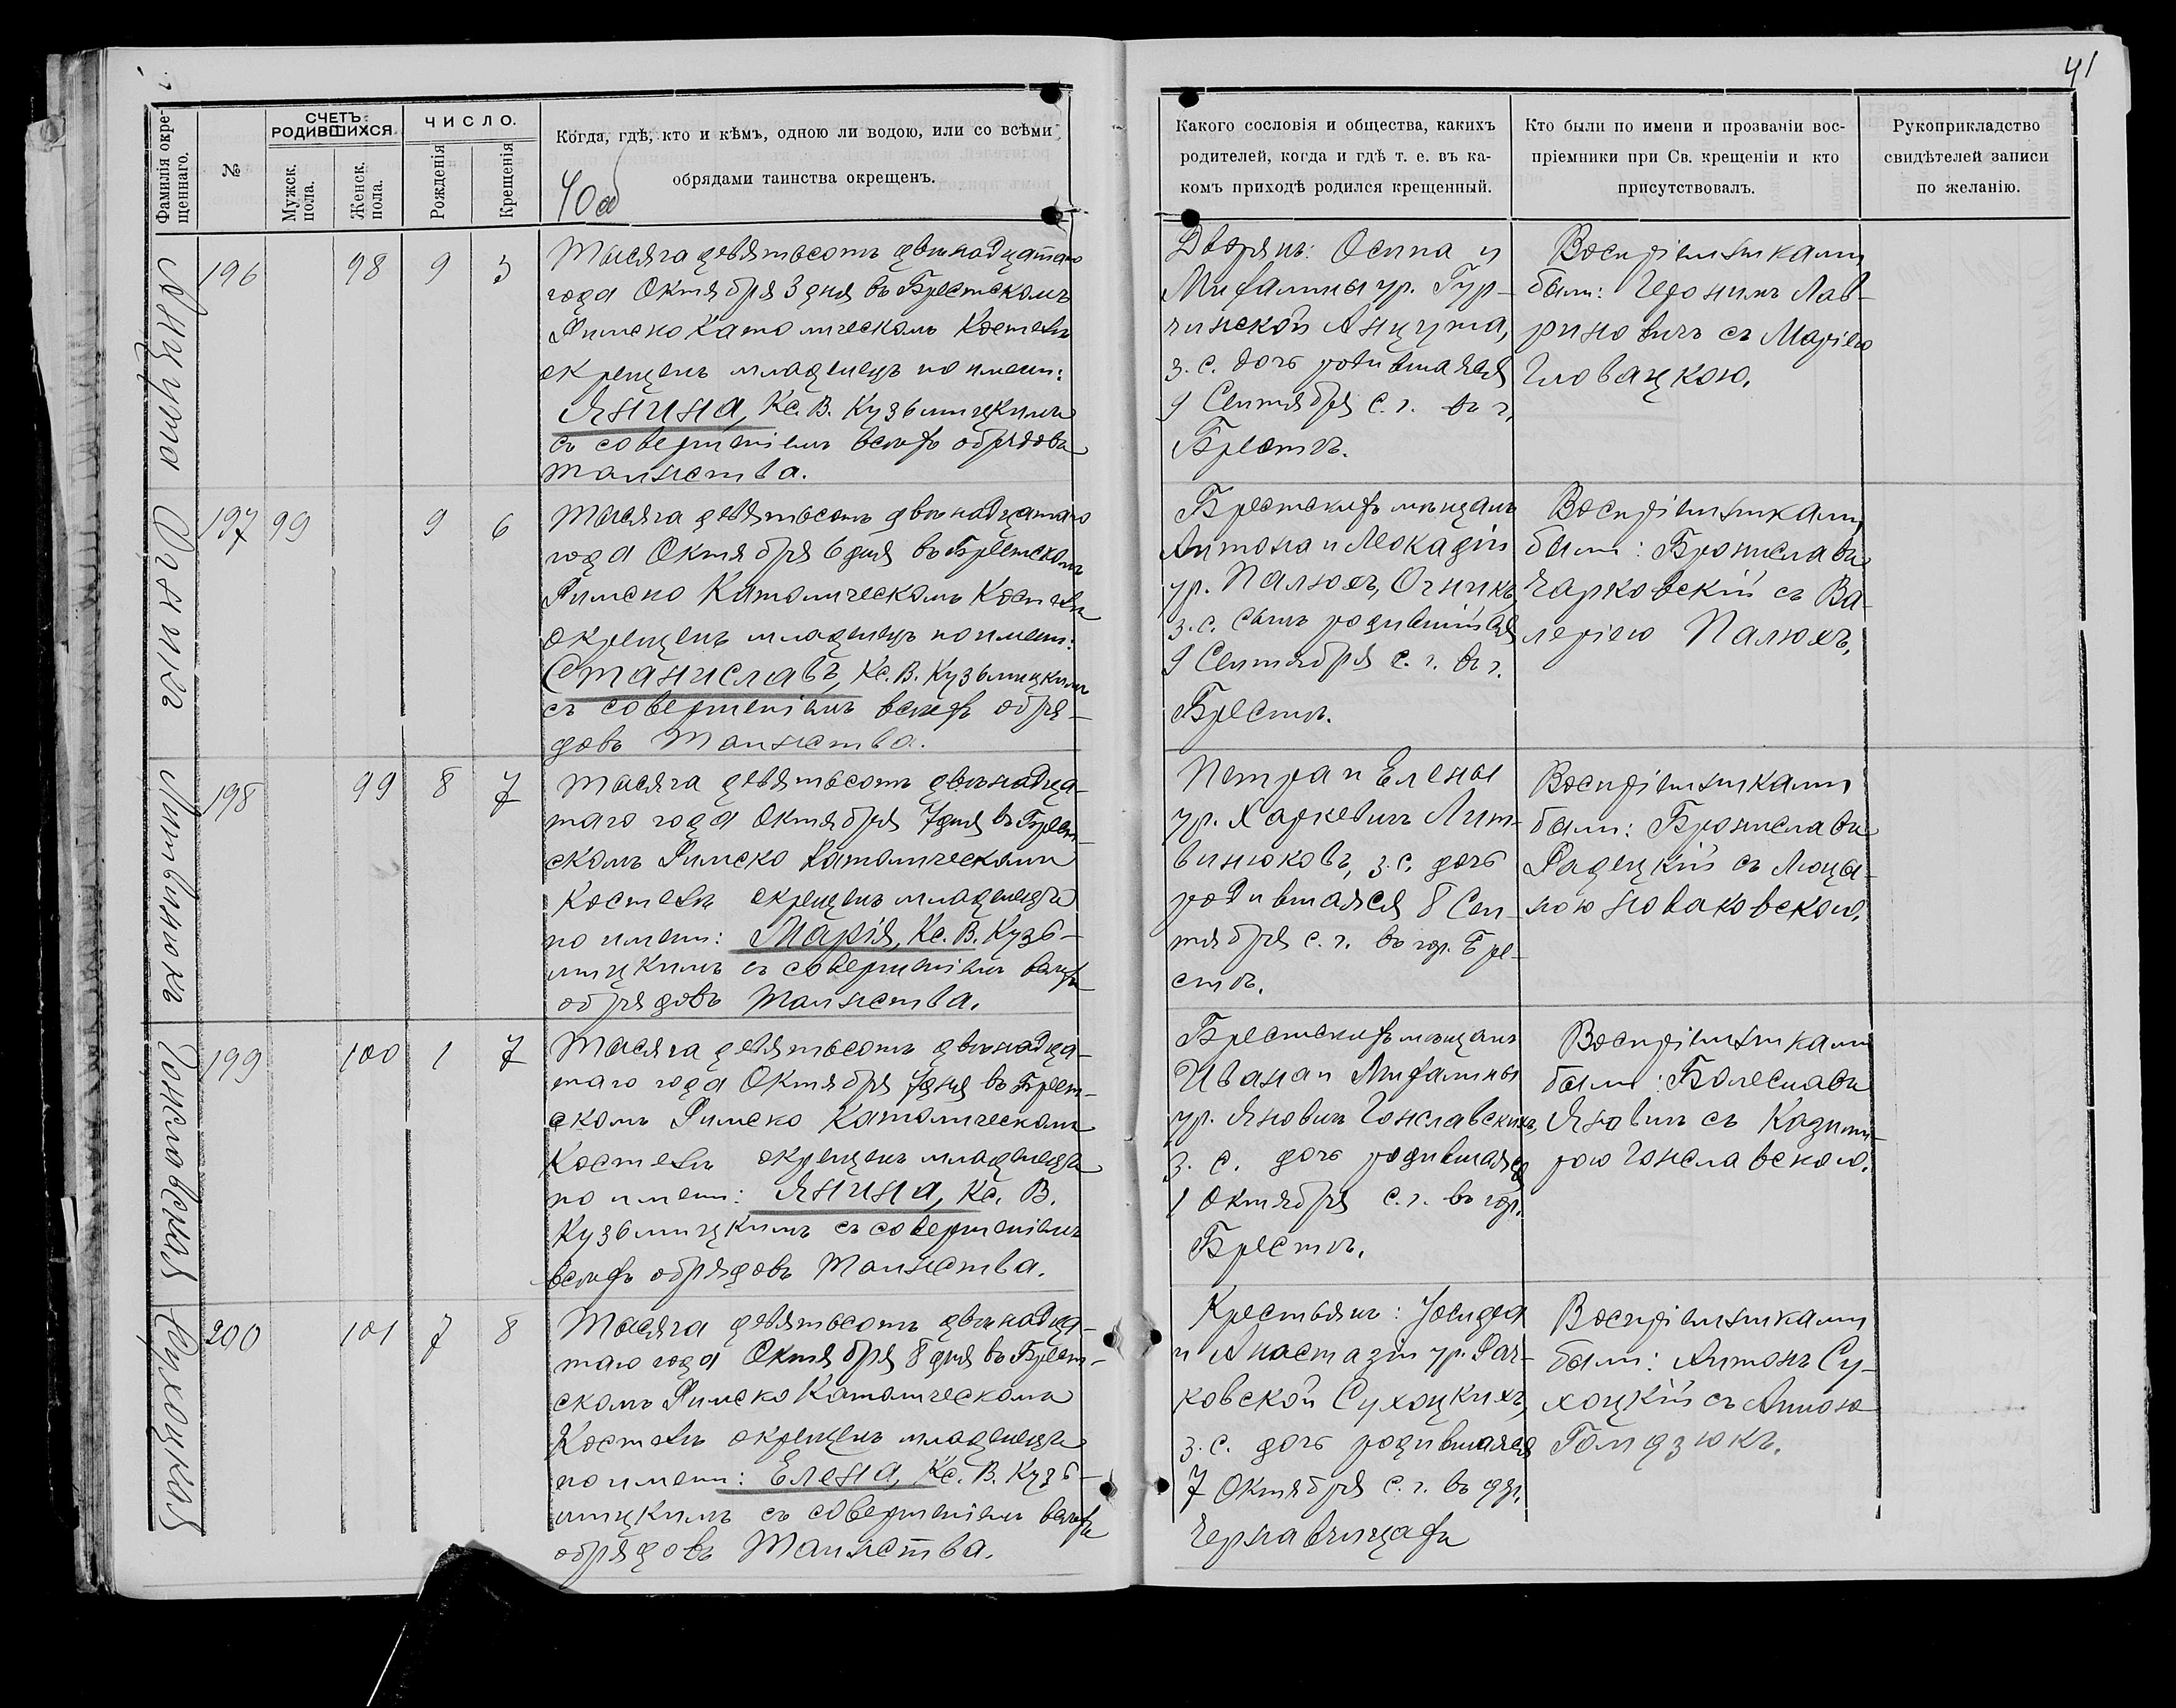 41
Фамилія окре-
щеннаго.
№
СЧЕТЪ
РОДИВШИХСЯ.
Мужск.
пола.
Женск.
пола.
ЧИСЛО.
Рожденія
Крещенія
Когда, гдѣ, кто и кѣмъ, одною ли водою, или со всѣми
обрядами таинства окрещенъ.
40об
Какого сословія и общества, какихъ
родителей, когда и гдѣ т. е. въ ка-
комъ приходѣ родился крещенный.
Кто были по имени и прозваніи вос-
пріемники при Св. крещеніи и кто
присутствовалъ.
Рукоприкладство
свидѣтелей записи
по желанію.
Анцута
196 98 9 3
Тысяча девятьсотъ двѣнадцатаго
года Октября 3 дня въ Брестскомъ
Римско Католическомъ Костелѣ
окрещенъ младенецъ по имени:
Янина, Кс. В. Кузьмицкимъ
съ совершеніемъ всѣхъ обрядовъ
Таинства.
Дворянъ: Осипа и
Михалины ур. Гур-
чинской Анцута,
з. с. дочь родившаяся
9 Сентября с. г. въ г.
Брестѣ.
Воспріемниками
были: Іеронимъ Лав-
риновичъ съ Маріею
Гловацкою.
Огникъ
197 99 9 6
Тысяча девятьсотъ двѣнадцатаго
года Октября 6 дня въ Брестскомъ
Римско Католическомъ Костелѣ
окрещенъ младенецъ по имени:
Станиславъ, Кс. В. Кузьмицкимъ
съ совершеніемъ всѣхъ обря-
довъ Таинства.
Брестскихъ мѣщанъ
Антона и Леокадіи
ур. Палюхъ, Огникъ,
з. с. сынъ родившійся
9 Сентября с. г. въ г.
Брестѣ.
Воспріемниками
были: Брониславъ
Чарковскій съ Ва-
леріею Палюхъ.
Литвинюкъ
198 99 8 7
Тысяча девятьсотъ двѣнадца-
таго года Октября 7 дня въ Брест-
скомъ Римско Католическомъ
Костелѣ окрещенъ младенецъ
по имени: Марія, Кс. В. Кузь-
мицкимъ съ совершеніемъ всѣхъ
обрядовъ Таинства.
Петра и Елены
ур. Харкевичъ Лит-
винюковъ, з. с. дочь
родившаяся 8 Сен-
тября с. г. въ гор. Бре-
стѣ.
Воспріемниками
были: Брониславъ
Радецкій съ Люцы-
ною Новаковскою.
Гонславская
199 100 1 7
Тысяча девятьсотъ двѣнадца-
таго года Октября 7 дня въ Брест-
скомъ Римско Католическомъ
Костелѣ окрещенъ младенецъ
по имени: Янина, Кс. В.
Кузьмицкимъ съ совершеніемъ
всѣхъ обрядовъ Таинства.
Брестскихъ мѣщанъ
Ивана и Михалины
ур. Яновичъ Гонславскихъ,
з. с. дочь родившаяся
1 Октября с. г. въ гор.
Брестѣ.
Воспріемниками
были: Болеславъ
Яновичъ съ Казими-
рою Гонславскою.
Сухоцкая
200 101 7 8
Тысяча девятьсотъ двѣнадца-
таго года Октября 8 дня въ Брест-
скомъ Римско Католическомъ
Костелѣ окрещенъ младенецъ
по имени: Елена, Кс. В. Кузь-
мицкимъ съ совершеніемъ всѣхъ
обрядовъ Таинства.
Крестьянъ: Іосифа
и Анастазіи ур. Рач-
ковской Сухоцкихъ,
з. с. дочь родившаяся
7 Октября с. г. въ дер.
Чернавчицахъ
Воспріемниками
были: Антонъ Су-
хоцкій съ Анною
Гомдзюкъ.